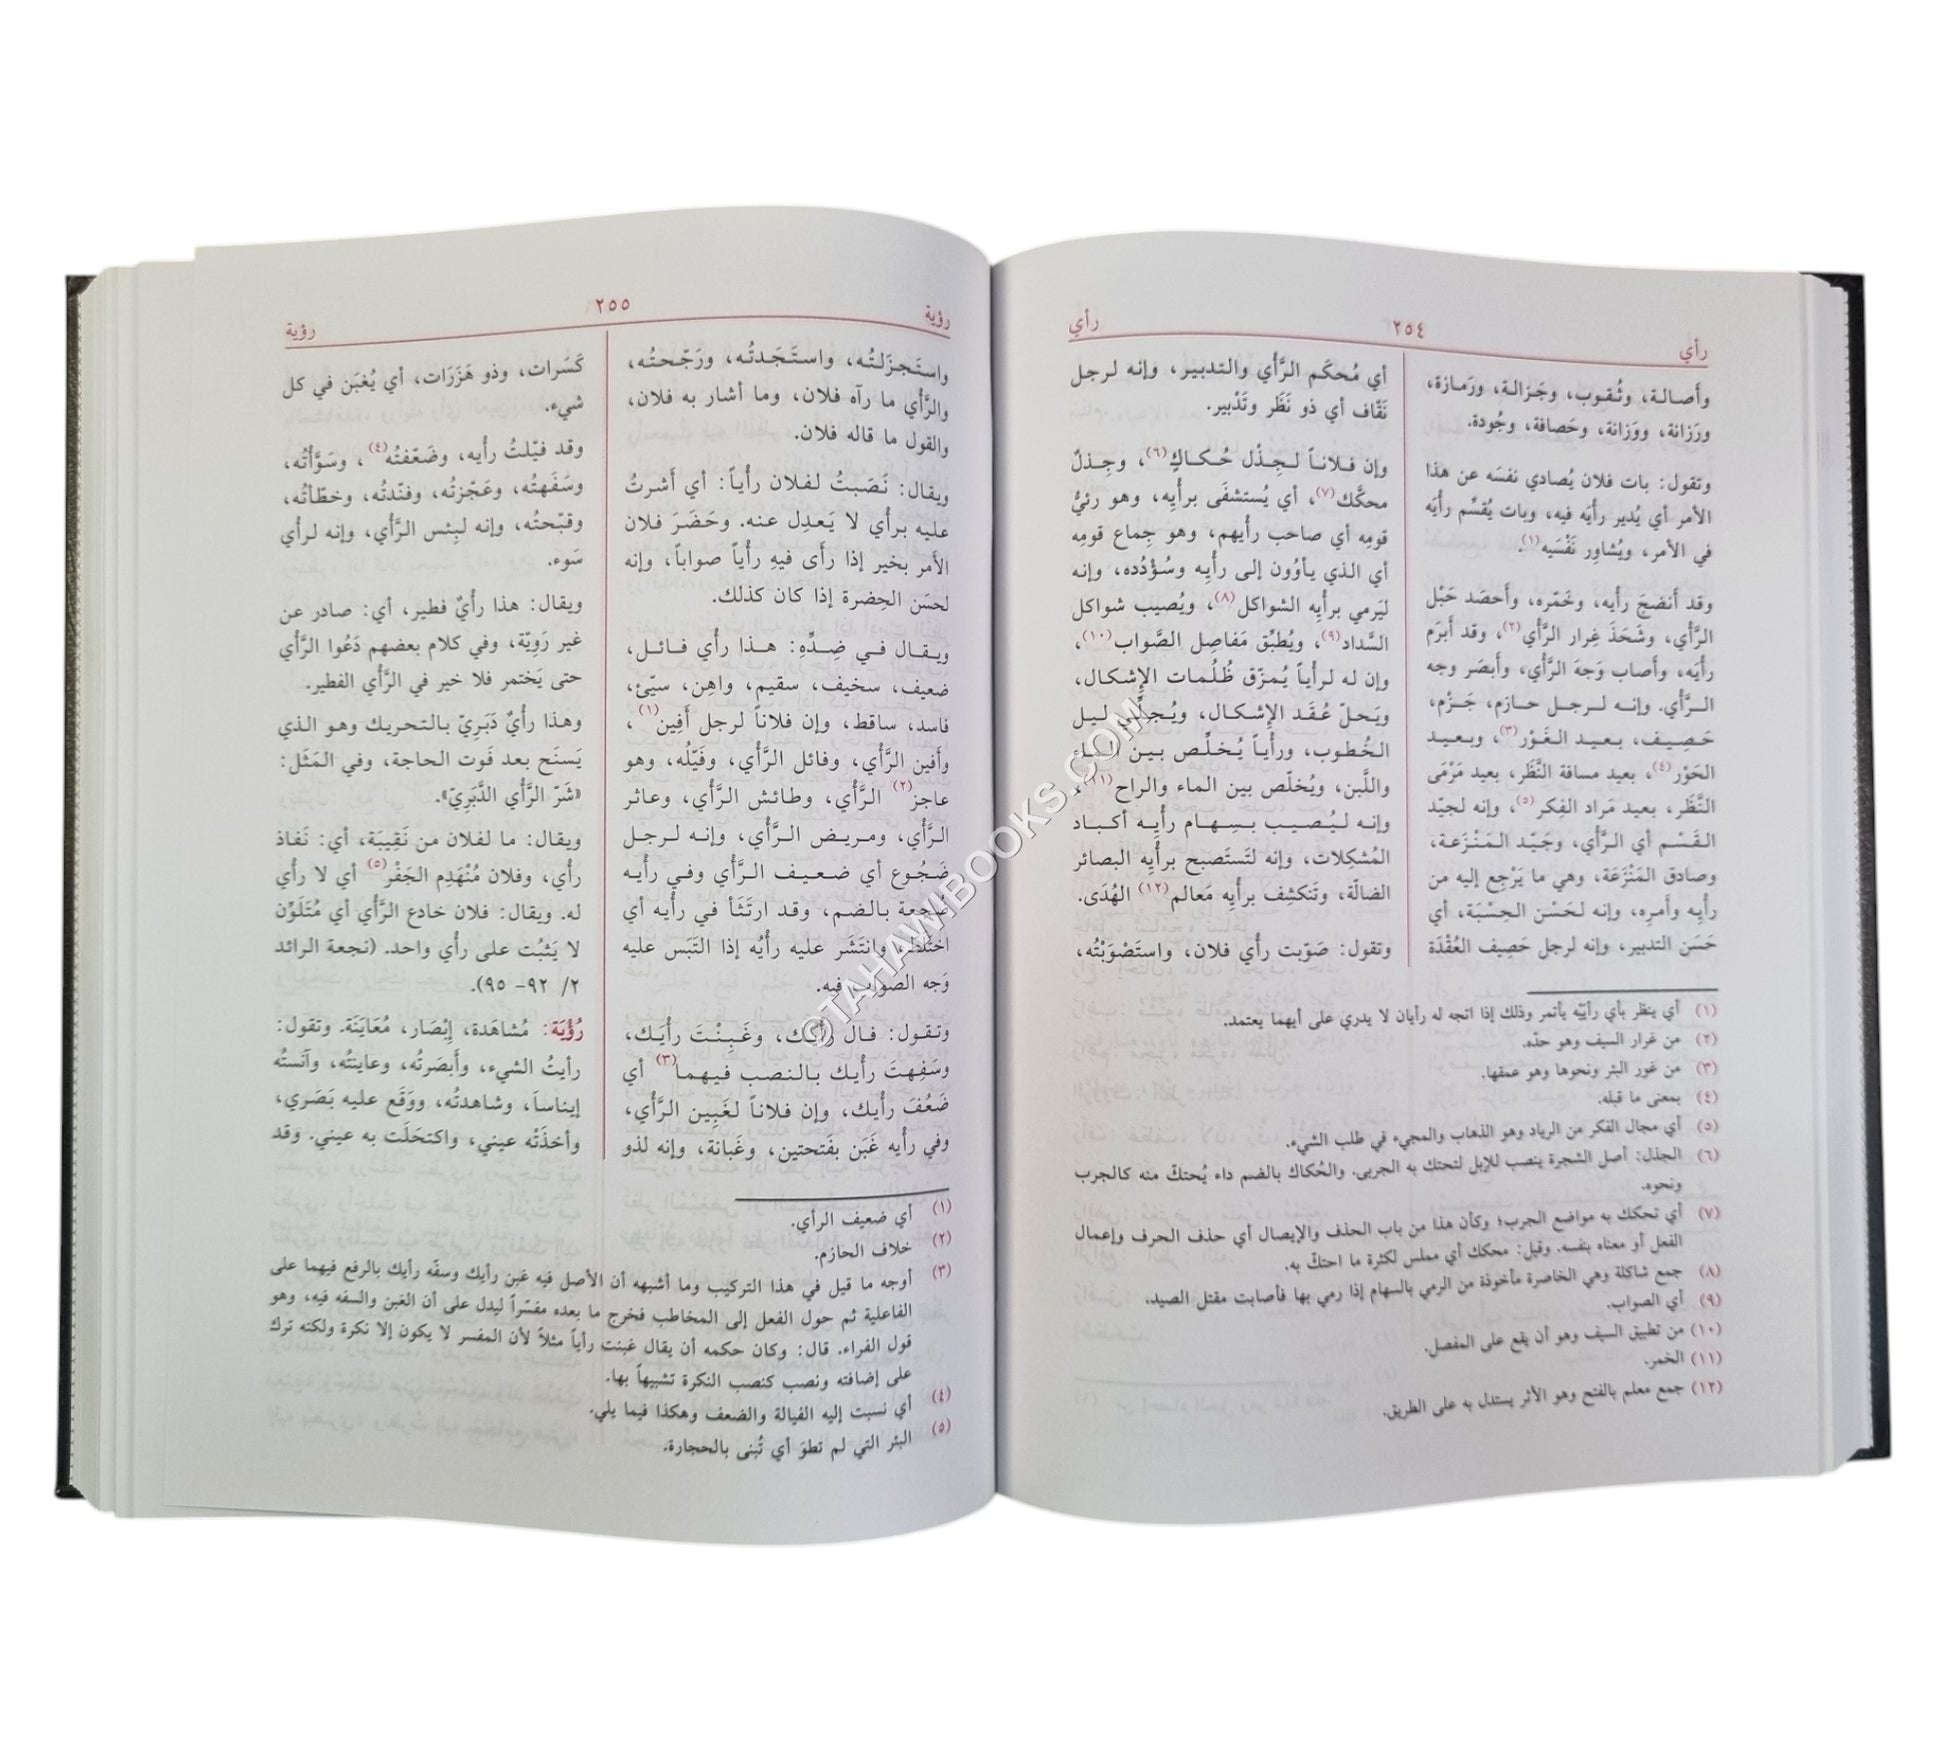 رأي
٢٥٤
رأي
وأصالة، وثُقوب، وجَزالة، ورَمازة،
ورَزانة، ووَزانة، وحَصافة، وجُودة.
وتقول: بات فلان يُصادي نفسَه عن هذا
الأمر أي يُدير رأيَه فيه، وبات يُقسِّم رأيَه
في الأمر، ويُشاوِر نَفْسَيه(١).
وقد أَنضجَ رأيه، وخَمّره، وأَحصَد حَبْل
الرَّأي، وشَحَذَ غِرار الرَّأي(٢)، وقد أَبرَم
رأيَه، وأصاب وَجهَ الرَّأي، وأَبصَر وجه
الرَّأي. وإنه لرجل حازم، جَزْم،
حَصِيف، بعيد الغَوْر(٣)، وبعيد
الحَوْر(٤)، بعيد مسافة النَّظَر، بعيد مَرْمَى
النَّظَر، بعيد مَراد الفِكر(٥)، وإنه لجيّد
القَسْم أي الرَّأي، وجَيّد المَنْزَعة،
وصادق المَنْزَعَة، وهي ما يَرْجِع إليه من
رأيِه وأمرِه، وإنه لحَسْن الحِسْبَة، أي
حَسَن التدبير، وإنه لرجل حَصِيف العُقْدَة
أي مُحكَم الرَّأي والتدبير، وإنه لرجل
نَقّاف أي ذو نَظَر وتَدْبير.
وإن فلاناً لجِذْل حُكاكٍ(٦)، وجِذلٌ
محكَّك(٧)، أي يُستشفَى برأيِه، وهو رئيُّ
قومِه أي صاحب رأيهم، وهو جِماع قومِه
أي الذي يأوُون إلى رأيِه وسُؤْدُده، وإنه
ليَرمي برأيِه الشواكل(٨)، ويُصيب شواكل
السَّداد(٩)، ويُطبِّق مَفاصِل الصَّواب(١٠)،
وإن له لرأياً يُمزّق ظُلُمات الإشكال،
ويَحلّ عُقَد الإشكال، ويُجلّي ليل
الخُطوب، ورأياً يُخلِّص بين الماء
واللَّبن، ويُخلّص بين الماء والراح(١١)،
وإنه ليُصيب بسِهام رأيِه أكباد
المُشكِلات، وإنه لتَستَصبح برأيِه البصائر
الضالّة، وتَنكشِف برأيِه مَعالم(١٢) الهُدَى.
وتقول: صَوّبت رأي فلان، واستَصْوَبْتُه،
(١) أي ينظر بأي رأيَيْه يأتمر وذلك إذا اتجه له رأيان لا يدري على أيهما يعتمد.
(٢) من غرار السيف وهو حدّه.
(٣) من غور البئر ونحوها وهو عمقها.
(٤) بمعنى ما قبله.
(٥) أي مجال الفكر من الرياد وهو الذهاب والمجيء في طلب الشيء.
(٦) الجذل: أصل الشجرة ينصب للإبل لتحتك به الجربى. والحُكاك بالضم داء يُحتكّ منه كالجرب
ونحوه.
(٧) أي تحكك به مواضع الجرب؛ وكأن هذا من باب الحذف والإيصال أي حذف الحرف وإعمال
الفعل أو معناه بنفسه. وقيل: محكك أي مملس لكثرة ما احتكّ به.
(٨) جمع شاكلة وهي الخاصرة مأخوذة من الرمي بالسهام إذا رمي بها فأصابت مقتل الصيد.
(٩) أي الصواب.
(١٠) من تطبيق السيف وهو أن يقع على المفصل.
(١١) الخمر.
(١٢) جمع معلم بالفتح وهو الأثر يستدل به على الطريق.
رؤية
٢٥٥
رؤية
واستَجزَلتُه، واستَجَدتُه، ورَجّحتُه،
والرَّأي ما رآه فلان، وما أشار به فلان،
والقول ما قاله فلان.
ويقال: نَصَبتُ لفلان رأياً: أي أَشرتُ
عليه برأي لا يَعدِل عنه. وحَضَرَ فلان
الأمر بخير إذا رأَى فيهِ رأياً صواباً، وإنه
لحسَن الحِضرة إذا كان كذلك.
ويقال في ضِدِّهِ: هذا رأي فائل،
ضعيف، سخيف، سقيم، واهِن، سيّئ،
فاسد، ساقط، وإن فلاناً لرجل أَفِين(١)،
وأَفين الرَّأي، وفائل الرَّأي، وفَيّلُه، وهو
عاجز(٢) الرَّأي، وطائش الرَّأي، وعاثر
الرَّأي، ومريض الرَّأي، وإنه لرجل
ضَجُوع أي ضعيف الرَّأي وفي رأيه
ضُجعة بالضم، وقد ارتَثَأ في رأيه أي
اختَلَط، وانتَشَر عليه رأيُه إذا التَبَس عليه
وَجه الصواب فيه.
وتقول: فال رأيُك، وغَبِنْتَ رأيَك،
وسَفِهتَ رأيك بالنصب فيهما(٣) أي
ضَعُفَ رأيك، وإن فلاناً لغَبِين الرَّأي،
وفي رأيه غَبَن بفَتحتين، وغَبانة، وإنه لذو
كَسَرات، وذو هَزَرَات، أي يُغبَن في كل
شيء.
وقد فيّلتُ رأيه، وضَعّفتُه(٤)، وسَوَّأتُه،
وسَفَهتُه، وعَجّزتُه، وفنّدتُه، وخطّأتُه،
وقبّحتُه، وإنه لبِئس الرَّأي، وإنه لرأي
سَوء.
ويقال: هذا رأيٌ فطير، أي: صادر عن
غير رَوِيّة، وفي كلام بعضهم دَعُوا الرَّأي
حتى يَختمر فلا خير في الرَّأي الفطير.
وهذا رأيٌ دَبَرِيّ بالتحريك وهو الذي
يَسنَح بعد فَوت الحاجة، وفي المَثَل:
«شَرّ الرَّأي الدَّبَرِيّ».
ويقال: ما لفلان من نَقِيبَة، أي: نَفاذ
رأي، وفلان مُنْهَدِم الجَفْر(٥) أي لا رأي
له. ويقال: فلان خادع الرَّأي أي مُتَلَوِّن
لا يَثبُت على رأي واحد. (نجعة الرائد
٢/ ٩٢- ٩٥).
رُؤْيَة: مُشاهَدة، إِبْصَار، مُعَايَنَة. وتقول:
رأيتُ الشيء، وأَبصَرتُه، وعاينتُه، وآنستُه
إيناسَا، وشاهدتُه، ووَقَع عليه بَصَري،
وأخذَتْه عيني، واكتحَلَت به عيني. وقد
(١) أي ضعيف الرأي.
(٢) خلاف الحازم.
(٣) أوجه ما قيل في هذا التركيب وما أشبهه أن الأصل فيه غبن رأيك وسفّه رأيك بالرفع فيهما على
الفاعلية ثم حول الفعل إلى المخاطب فخرج ما بعده مفسّراً ليدل على أن الغبن والسفه فيه، وهو
قول الفراء. قال: وكان حكمه أن يقال غبنت رأياً مثلاً لأن المفسر لا يكون إلا نكرة ولكنه ترك
على إضافته ونصب كنصب النكرة تشبيهاً بها.
(٤) أي نسبت إليه الفيالة والضعف وهكذا فيما يلي.
(٥) البئر التي لم تطوَ أي تُبنى بالحجارة.
©TAHAWIBOOKS.COM